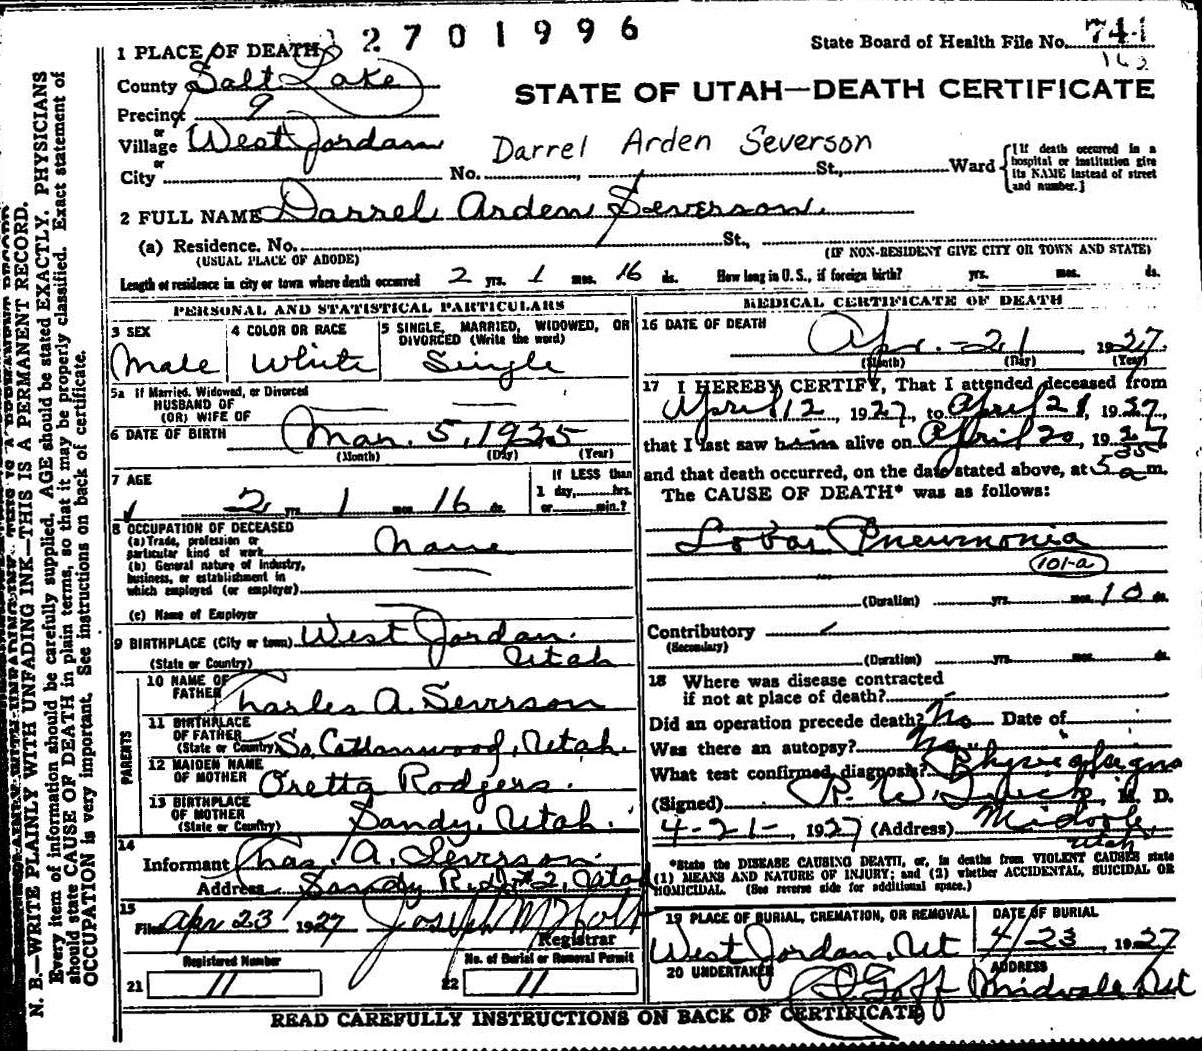 2701996
State Board of Health File No. 741
162
1 PLACE OF DEATH
County Salt Lake
STATE OF UTAH—DEATH CERTIFICATE
Precinct 9
or
Village West Jordan
Darrel Arden Severson
or
City No. St., Ward
[If death occurred in a hospital or institution give its NAME instead of street and number.]
2 FULL NAME Darrel Arden Severson.
(a) Residence. No. St.,
(USUAL PLACE OF ABODE) (IF NON-RESIDENT GIVE CITY OR TOWN AND STATE)
Length of residence in city or town where death occurred 2 yrs. 1 mos. 16 ds. How long in U.S., if foreign birth? yrs. mos. ds.
PERSONAL AND STATISTICAL PARTICULARS
3 SEX Male
4 COLOR OR RACE White
5 SINGLE, MARRIED, WIDOWED, OR DIVORCED (Write the word) Single
5a If Married, Widowed, or Divorced
HUSBAND OF
(OR) WIFE OF
6 DATE OF BIRTH Mar. 5, 1925
(Month) (Day) (Year)
7 AGE 2 yrs. 1 mos. 16 ds.
If LESS than
1 day, hrs.
or min.?
8 OCCUPATION OF DECEASED
(a) Trade, profession or
particular kind of work None
(b) General nature of Industry,
business, or establishment in
which employed (or employer)
(c) Name of Employer
9 BIRTHPLACE (City or town) West Jordan.
(State or Country) Utah
PARENTS
10 NAME OF FATHER Charles A. Severson
11 BIRTHPLACE OF FATHER (State or Country) So. Cottonwood, Utah.
12 MAIDEN NAME OF MOTHER Oretta Rodgers.
13 BIRTHPLACE OF MOTHER (State or Country) Sandy, Utah.
14
Informant Chas. A. Severson.
Address Sandy R.D. #2, Utah
15
Filed Apr 23 1927 Joseph M Holt
Registrar
Registered Number No. of Burial or Removal Permit
21 11 22 11
MEDICAL CERTIFICATE OF DEATH
16 DATE OF DEATH
Apr. - 21, 1927
(Month) (Day) (Year)
17 I HEREBY CERTIFY, That I attended deceased from
April 12 1927, to April 21, 1927,
that I last saw him alive on April 20, 1927
and that death occurred, on the date stated above, at 5 35 a m.
The CAUSE OF DEATH* was as follows:
Lobar Pneumonia
101-a
(Duration) yrs. mos. 10 ds.
Contributory
(Secondary)
(Duration) yrs. mos. ds.
18 Where was disease contracted
if not at place of death?
Did an operation precede death? No Date of
Was there an autopsy? No
What test confirmed diagnosis? Phys. of signs
(Signed) R. W. M. D.
4-21-, 1927 (Address) Midvale,
Utah
*State the DISEASE CAUSING DEATH, or, in deaths from VIOLENT CAUSES state
(1) MEANS AND NATURE OF INJURY; and (2) whether ACCIDENTAL, SUICIDAL OR
HOMICIDAL. (See reverse side for additional space.)
19 PLACE OF BURIAL, CREMATION, OR REMOVAL West Jordan, Ut
DATE OF BURIAL 4/23, 1927
20 UNDERTAKER Goff
ADDRESS Midvale Ut
READ CAREFULLY INSTRUCTIONS ON BACK OF CERTIFICATE
N. B.—WRITE PLAINLY WITH UNFADING INK—THIS IS A PERMANENT RECORD.
Every item of information should be carefully supplied. AGE should be stated EXACTLY. PHYSICIANS
should state CAUSE OF DEATH in plain terms, so that it may be properly classified. Exact statement of
OCCUPATION is very important. See instructions on back of certificate.